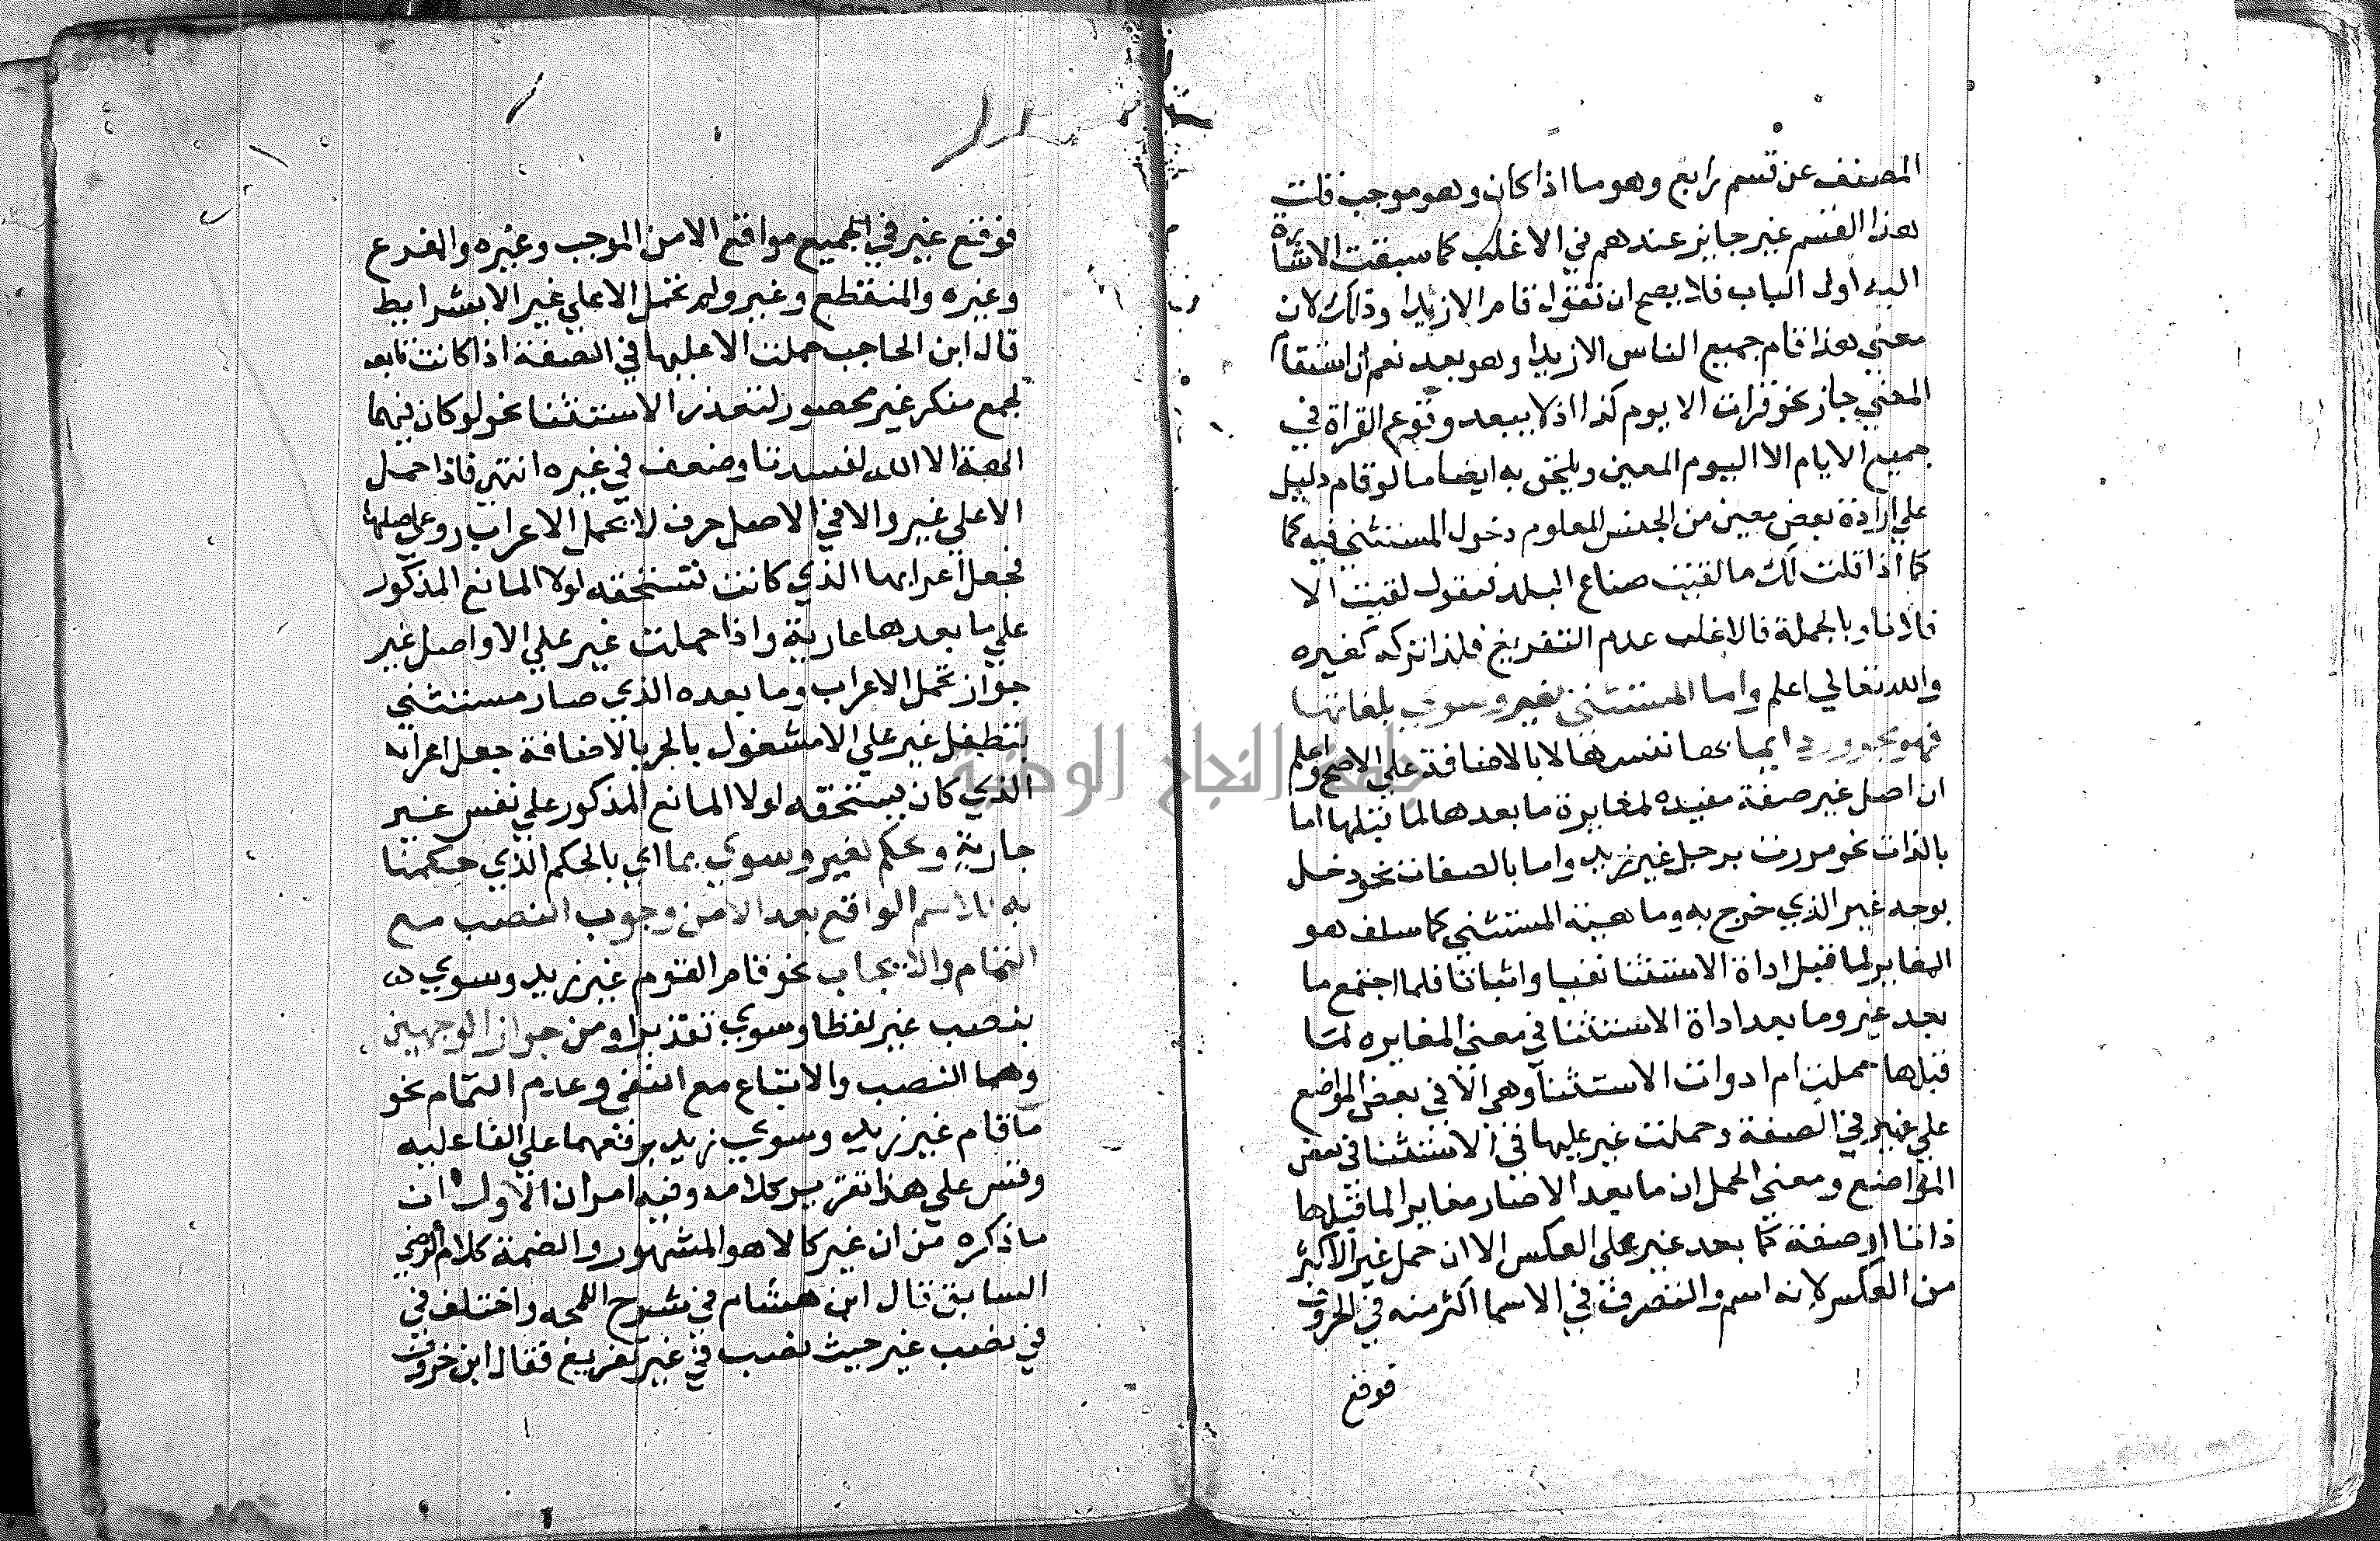 المصنف عن قسم رابع وهو ما اذا كان وهو موجب قلت
هذا القسم غير جايز عندهم في الاغلب كما سبقت الاشارة
اليه اول الباب فلا يصح ان تقول قام الا زيدا وذلك لان
معنى هذا قام جميع الناس الا زيدا وهو بعيد نعم ان استقام
المعني جاز نحو قرات الا يوم كذا اذ لا يبعد وقوع القراة في
جميع الايام الا اليوم المعين ويلحق به ايضا ما لو قام دليل
علي ارادة بعض معين من الجنس المعلوم دخول المستثني فيه كما
كما اذا قلت لك ما لقيت صناع البلد فتقول لقيت الا
فلانا وبالجملة فالاغلب عدم التفريغ فلذا تركه كغيره
والله تعالي اعلم واما المستثني بغير وسوي بلغاتها
فهو مجرور دايما بها نفسها لا بالاضافة علي الاصح واعلم
ان اصل غير صفة مفيده لمغايرة ما بعدها لما قبلها اما
بالذات نحو مررت برجل غير زيد واما بالصفات نحو دخل
بوجه غير الذي خرج به وماهية المستثني كما سلف هو
المغاير لما قبل اداة الاستثنا نفيا واثباتا فلما اجتمع ما
بعد غير وما بعد اداة الاستثنا في معني المغايره لما
قبلها حملت ام ادوات الاستثنا وهي الا في بعض المواضع
علي غير في الصفة وحملت غير عليها في الاستثنا في بعض
المواضع ومعني الحمل ان ما بعد الا صار مغايرا لما قبلها
ذاتا او صفة كما بعد غير علي العكس الا ان حمل غير الا اكثر
من العكس لانه اسم والتصرف في الاسما اكثر منه في الحروف
فوقع
فوقع غير في الجميع مواقع الا من الموجب وغيره والمفرع
وغيره والمنقطع وغيره ولم تحمل الا علي غير الا بشرايط
قال ابن الحاجب حملت الا عليها في الصفة اذا كانت تابعه
لجمع منكر غير محصور لتعذر الاستثنا نحو لو كان فيهما
الهة الا الله لفسدتا وضعف في غيره انتهي فاذا حمل
الا علي غير والا في الاصل حرف لا تحمل الاعراب روعي اصلها
فجعل اعرابها الذي كانت تستحقه لولا المانع المذكور
علي ما بعدها عارية واذا حملت غير علي الا واصل غير
جواز تحمل الاعراب وما بعده الذي صار مستثني
لتطفل غير علي الا مشغول بالجر بالاضافة جعل اعرابه
الذي كان يستحقه لولا المانع المذكور علي نفس غير
جارية وحكم لغير وسوي بما اي بالحكم الذي حكمنا
به للاسم الواقع بعد الا من وجوب النصب مع
التمام والايجاب نحو قام القوم غير زيد وسوي
بنصب غير لفظا وسوي تقديرا ومن جواز الوجهين
وهما النصب والاتباع مع النفي وعدم التمام نحو
ما قام غير زيد وسوي زيد برفعهما علي الفاعليه
وقس علي هذا تقرير كلامه وفيه امران الاول ان
ما ذكره من ان غير كالا هو المشهور والضمة كلام
السابق قال ابن هشام في شرح اللمحه واختلف في
في نصب غير حيث نصب في غير تفريغ فقال ابن خروف
جامعة النجاح الوطنية